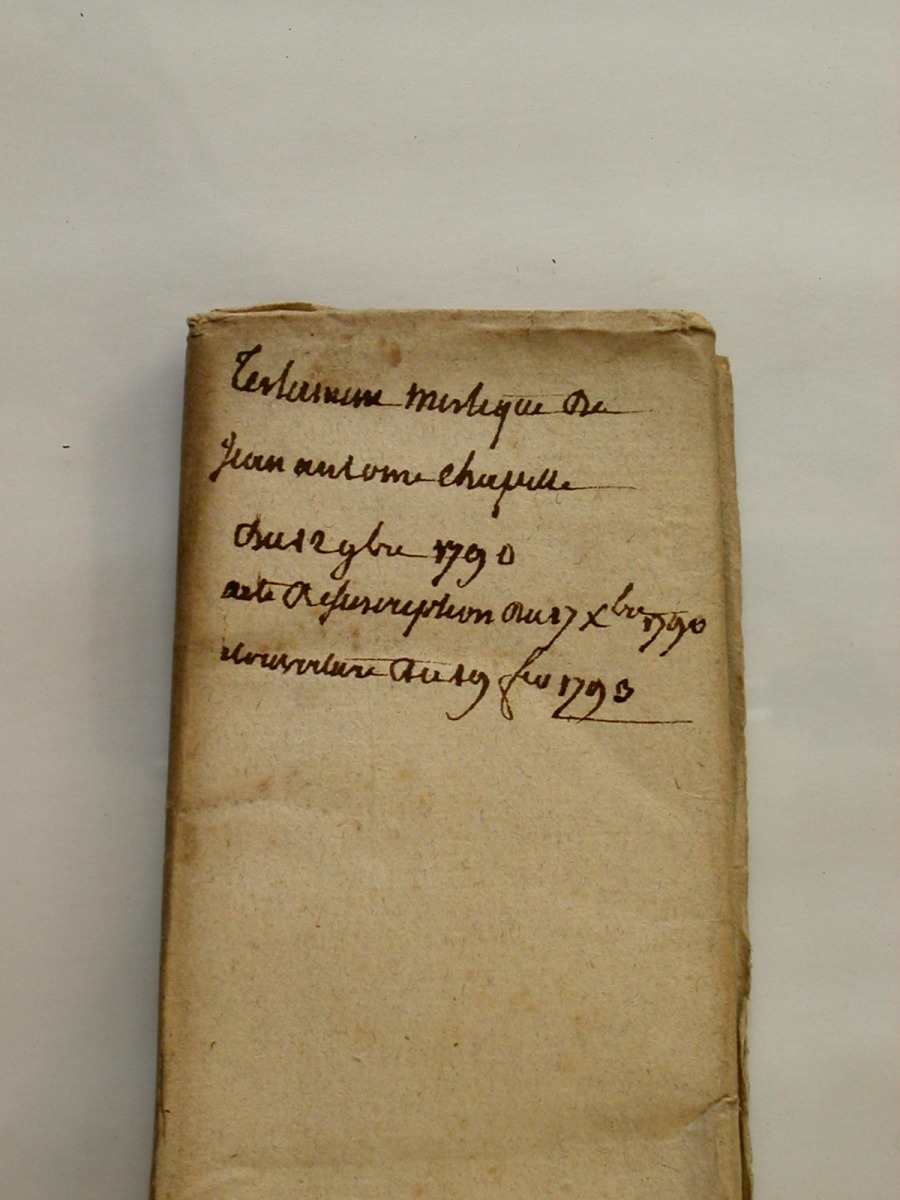 Testamene mistique De
Jean antoine Chapelle
Du 12 9bre 1790
acte De suscription Du 17 Xbre 1790
et ouverture Du 19 fev 1793